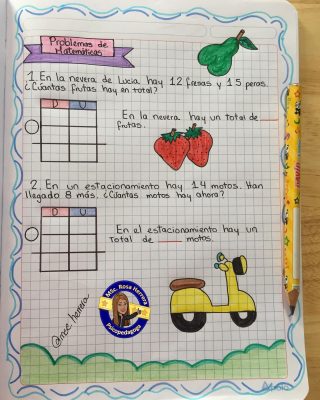 Problemas de
Matemáticas
1. En la nevera de Lucia hay 12 fresas y 15 peras.
¿Cuántas frutas hay en total?
D U
En la nevera hay un total de __
frutas.
2. En un estacionamiento hay 14 motos. Han
llegado 8 más. ¿Cuántas motos hay ahora?
D U
En el estacionamiento hay un
total de __ motos.
Msc. Rosa Herrera
Psicopedagoga